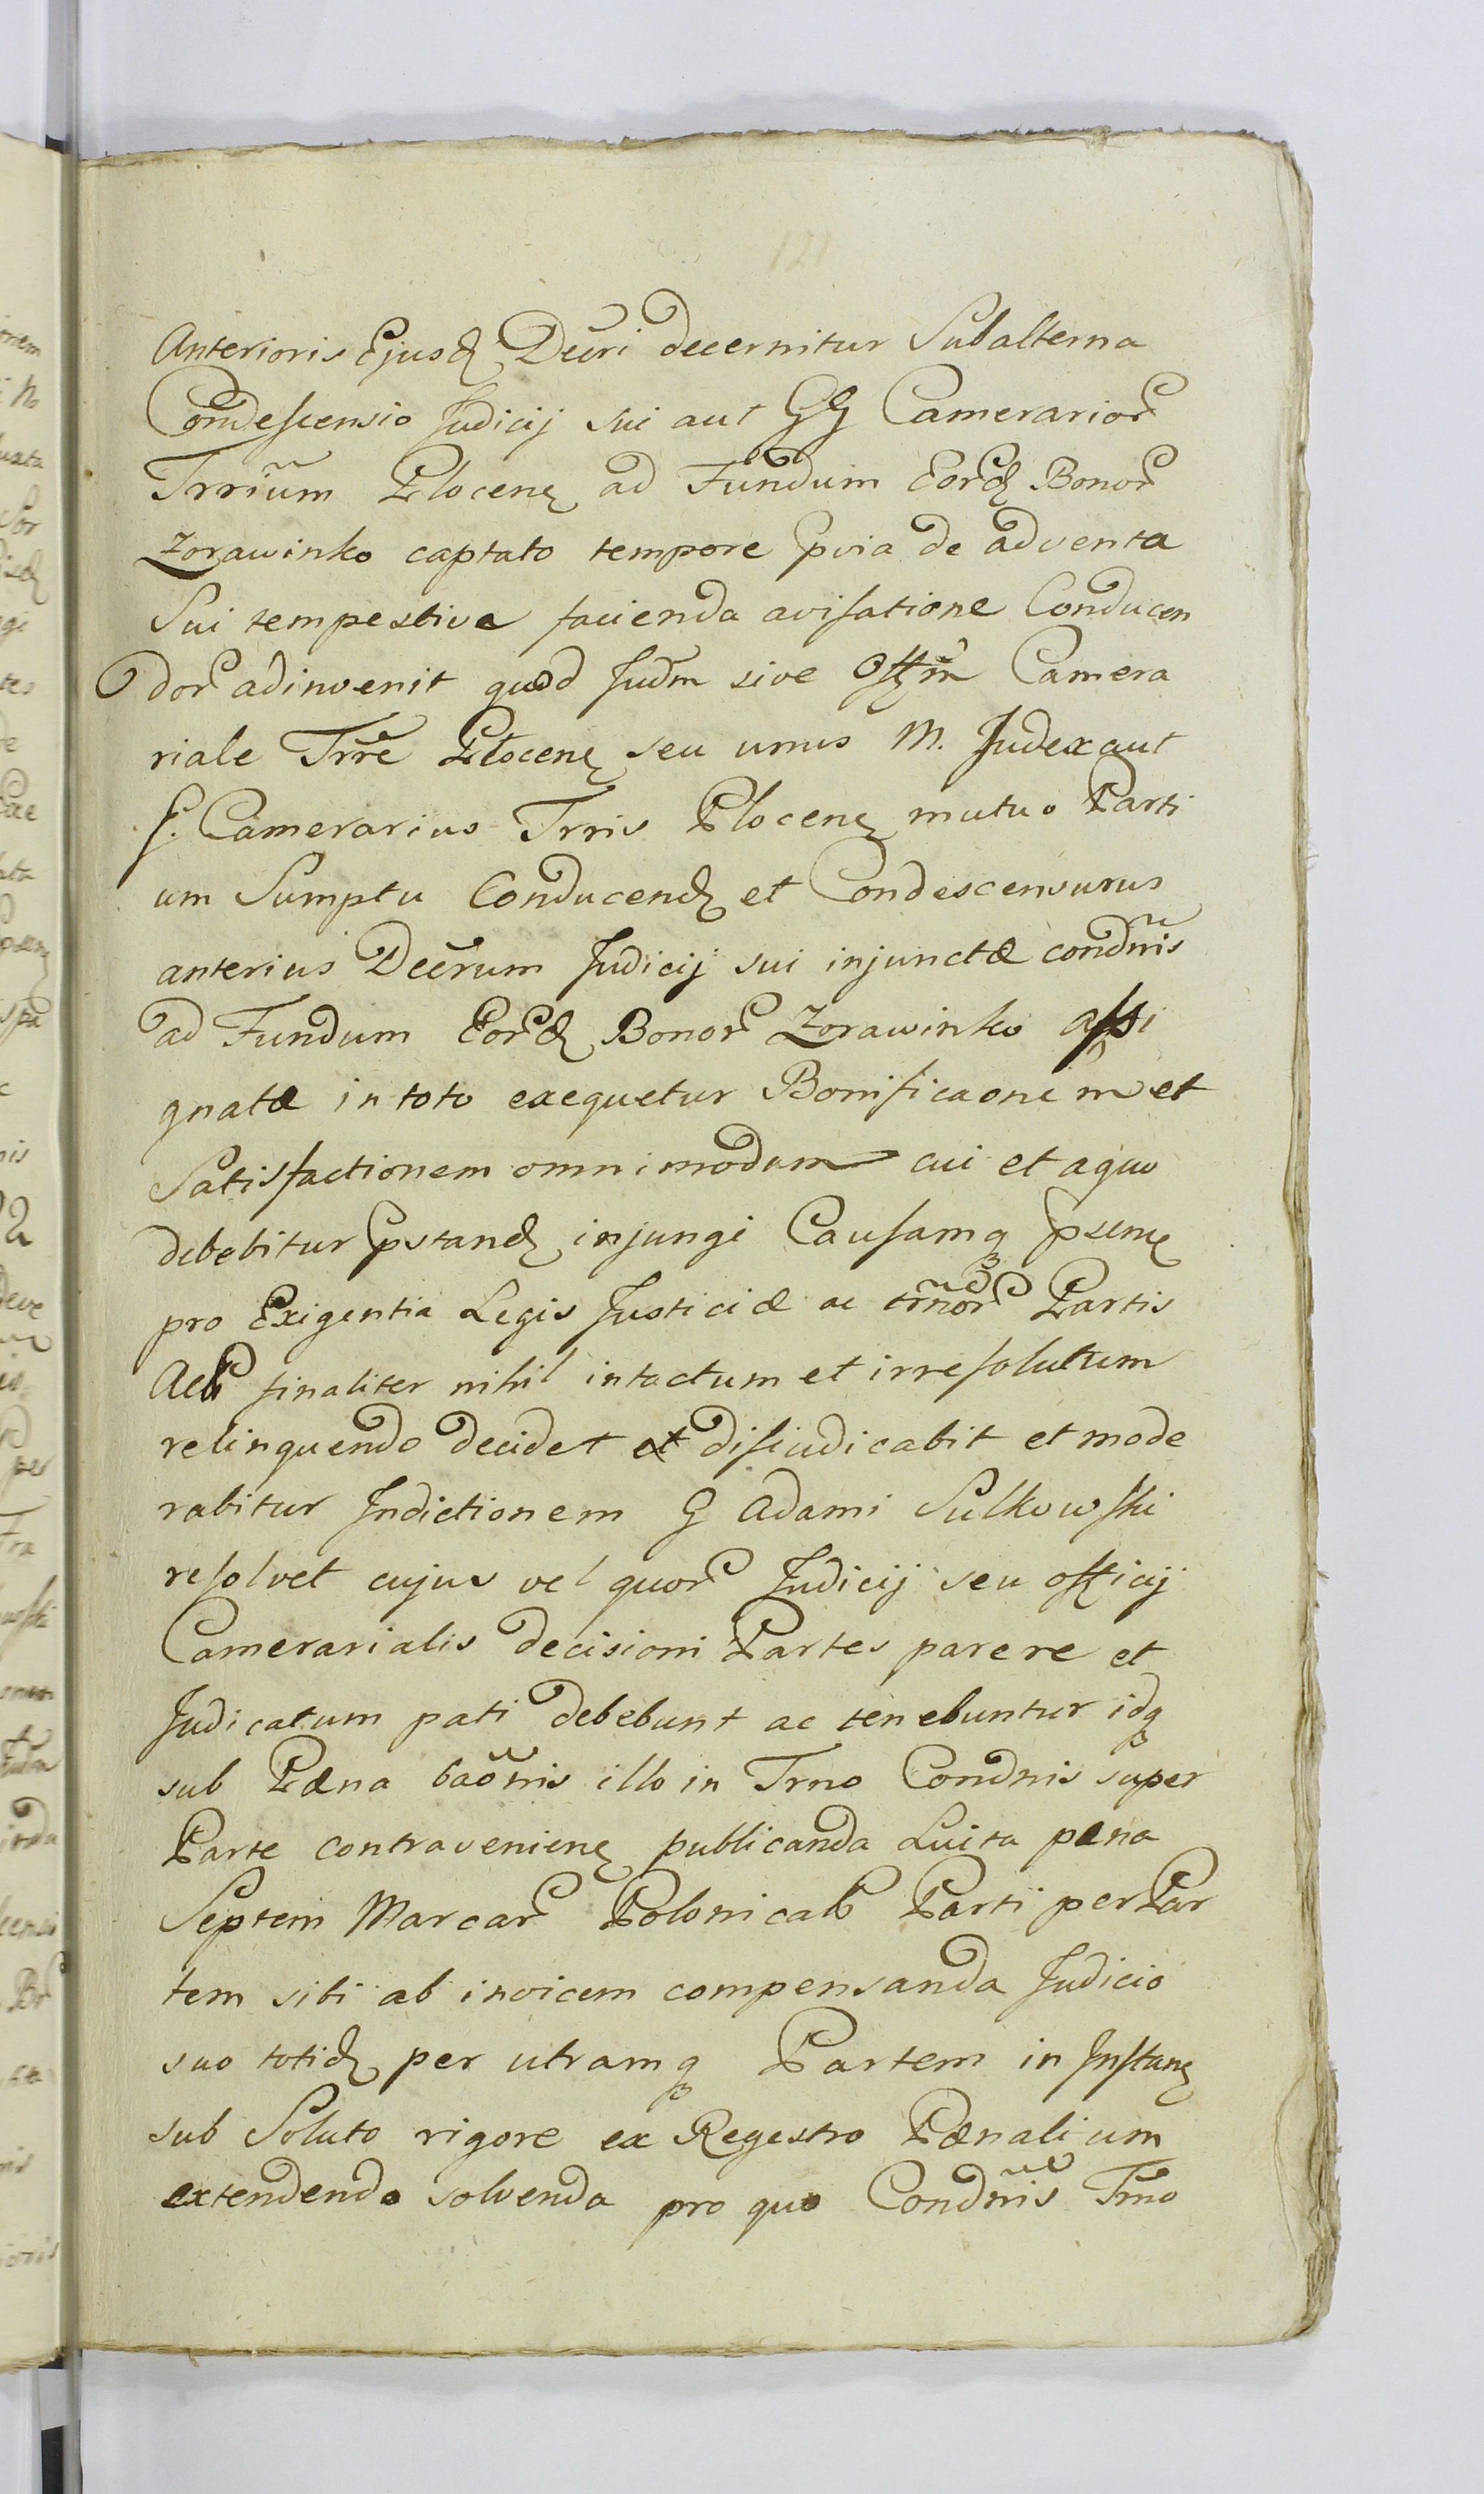 121
Anterioris Ejusd Decri decernitur Subalterna
Condescensio Judicij sui aut GG Camerarior
Trrium Plocen ad Fundum Eord Bonor
Zorawinko captato tempore pvia de adventa
Sui tempestive facienda avisatione Conducen
dor adinvenit quod Judm sive Offm Camera
riale Trre Plocen seu unus M. Judex aut
G. Camerarius Trris Plocen mutuo Parti
um Sumptu Conducend et Condescensurus
anterius Decrum Judicij sui injunctæ condnis
ad Fundum Eord Bonor Zorawinko assi
gnatæ in toto exequetur Bonificaonem et
Satisfactionem omnimodam cui et a quo
debebitur pstand injungi Causamq psen
pro Exigentia Legis Justiciæ ac trnor Partis
Acb finaliter nihil intactum et irresolutum
relinquendo decidet et disiudicabit et mode
rabitur Indictionem G Adami Sulkowski
resolvet cujus vel quor Judicij seu officij
Camerarialis decisioni Partes parere et
Judicatum pati debebunt ac tenebuntur idq
sub Pæna baonis illo in Trno Condnis super
Parte contravenien publicanda Luita pæna
Septem Marcar Polonicalb Parti per Par
tem sibi ab invicem compensanda Judicio
suo totid per utramq Partem in Instan
sub Soluto rigore ex Regestro Pænalium
extendendo solvenda pro quo Condnis Trno